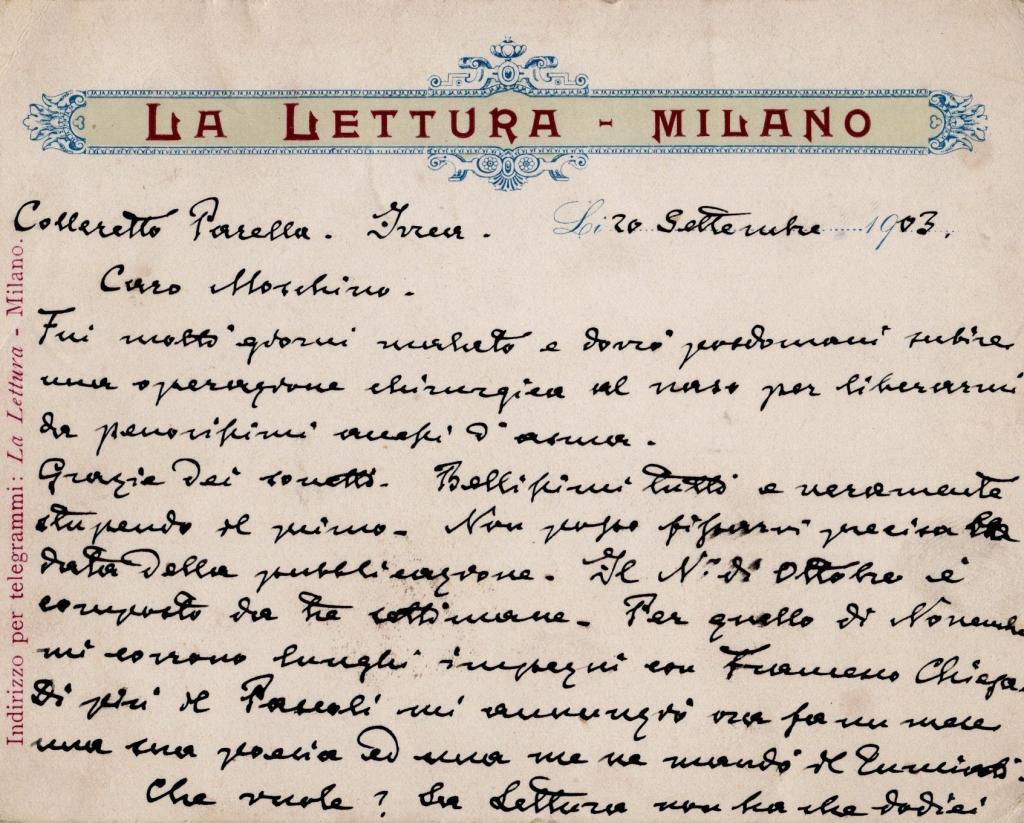 LA LETTURA - MILANO
Colleretto Parella. Ivrea. Li 20 Settembre 1903.
Caro Moschino.
Fui molti giorni malato e dovrò posdomani subire
una operazione chirurgica al naso per liberarmi
da penosissimi accessi d'asma.
Grazie dei sonetti. Bellissimi tutti e veramente
stupendo il primo. Non posso fissarvi precisa la
data della pubblicazione. Il N.º di Ottobre è
composto da tre settimane. Per quello di Novembre
mi corrono lunghi impegni con Francesco Chiesa.
Di più il Pascoli mi annunziò ora fa un mese
una sua poesia ed una me ne mandò il
Che vuole? La Lettura non ha che dodici
Indirizzo per telegrammi: La Lettura - Milano.